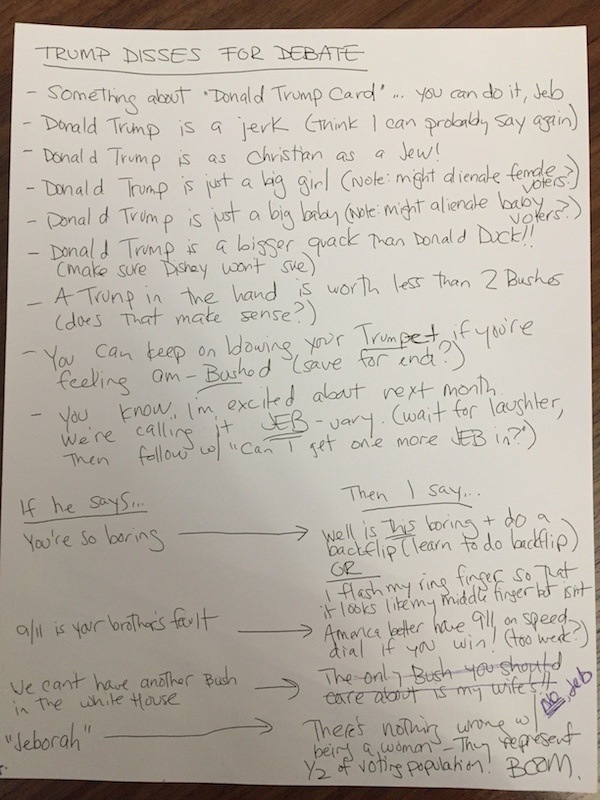 TRUMP DISSES FOR DEBATE
- Something about "Donald Trump Card"... you can do it, Jeb
- Donald Trump is a jerk (think I can probably say again)
- Donald Trump is as Christian as a Jew!
- Donald Trump is just a big girl (Note: might alienate female voters?)
- Donald Trump is just a big baby (Note: might alienate baby voters?)
- Donald Trump is a bigger quack than Donald Duck!!
(make sure Disney wont sue)
- A Trump in the hand is worth less than 2 Bushes
(does that make sense?)
- You can keep on blowing your Trumpet if you're
feeling am-Bushed (save for end?)
- You know, I'm excited about next month.
We're calling it JEB-uary. (wait for laughter,
then follow w/ "Can I get one more JEB in?")
If he says...
Then I say...
You're so boring
Well is this boring + do a
backflip (learn to do backflip)
OR
I flash my ring finger so that
it looks like my middle finger but isnt
9/11 is your brother's fault
America better have 911 on speed
dial if you win! (too weak?)
We cant have another Bush
in the White House
The only Bush you should
care about is my wife's!!
No, Jeb
"Jeborah"
There's nothing wrong w/
being a woman - They represent
1/2 of voting population! BOOM.